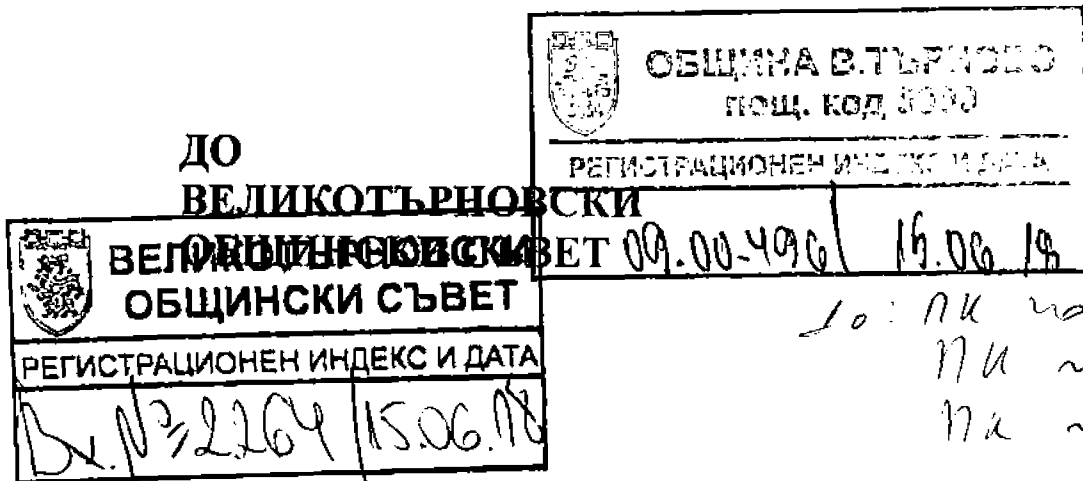 ОБЩИНА В.ТЪРНОВО
пощ. код 5000
РЕГИСТРАЦИОНЕН ИНДЕКС И ДАТА
09.00-496 15.06 18
ДО
ВЕЛИКОТЪРНОВСКИ
ОБЩИНСКИ СЪВЕТ
ВЕЛИКОТЪРНОВСКИ
ОБЩИНСКИ СЪВЕТ
РЕГИСТРАЦИОНЕН ИНДЕКС И ДАТА
Вх. № 2264 15.06.18
До: ПК
ПК
ПК